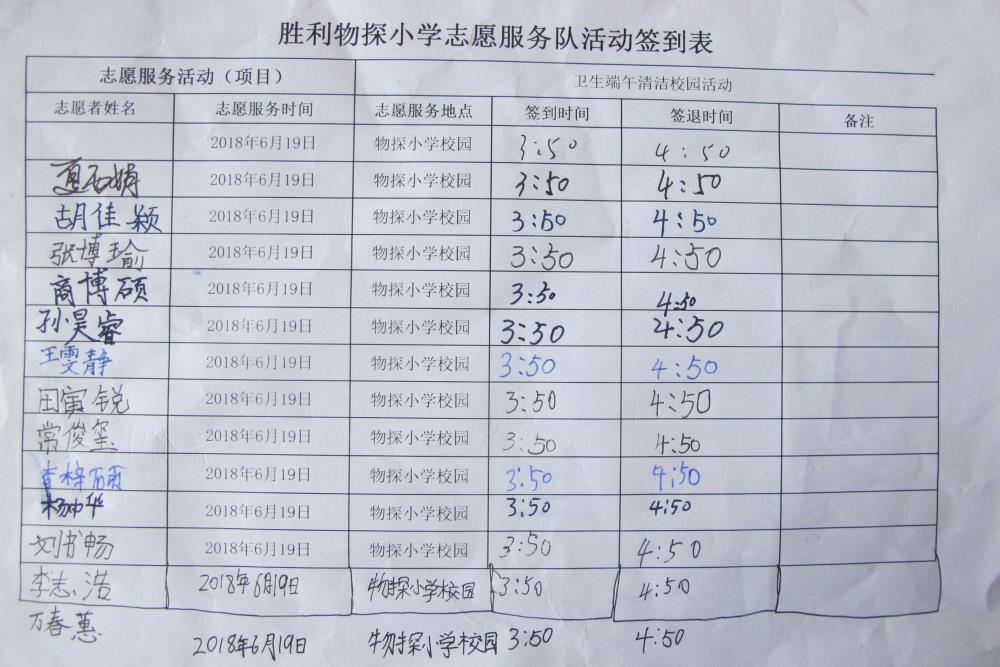 胜利物探小学志愿服务队活动签到表
志愿服务活动（项目） 卫生端午清洁校园活动
志愿者姓名 志愿服务时间 志愿服务地点 签到时间 签退时间 备注
2018年6月19日 物探小学校园 3:50 4:50
2018年6月19日 物探小学校园 3:50 4:50
胡佳颖 2018年6月19日 物探小学校园 3:50 4:50
张博瑜 2018年6月19日 物探小学校园 3:50 4:50
商博硕 2018年6月19日 物探小学校园 3:50 4:50
孙昊睿 2018年6月19日 物探小学校园 3:50 4:50
王雯静 2018年6月19日 物探小学校园 3:50 4:50
田寅锐 2018年6月19日 物探小学校园 3:50 4:50
常俊玺 2018年6月19日 物探小学校园 3:50 4:50
2018年6月19日 物探小学校园 3:50 4:50
2018年6月19日 物探小学校园 3:50 4:50
刘书畅 2018年6月19日 物探小学校园 3:50 4:50
李志浩 2018年6月19日 物探小学校园 3:50 4:50
万春蕙 2018年6月19日 物探小学校园 3:50 4:50